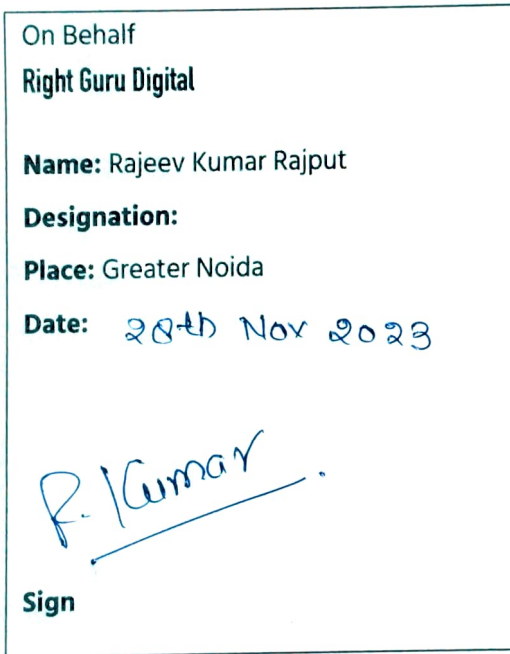 On Behalf
Right Guru Digital
Name: Rajeev Kumar Rajput
Designation:
Place: Greater Noida
Date: 28th Nov 2023
R. Kumar
Sign